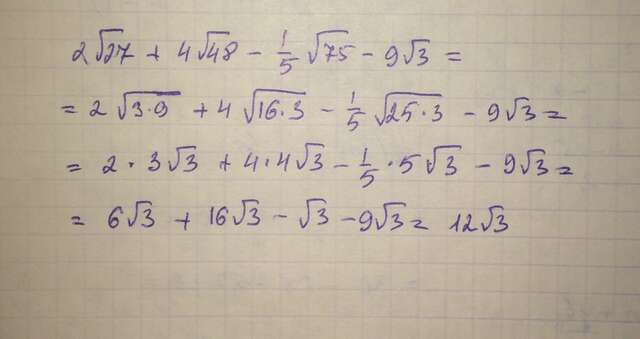 2√27 + 4√48 - 1/5 √75 - 9√3 =
= 2 √3·9 + 4 √16·3 - 1/5 √25·3 - 9√3 =
= 2 · 3√3 + 4·4√3 - 1/5 · 5√3 - 9√3 =
= 6√3 + 16√3 - √3 - 9√3 = 12√3